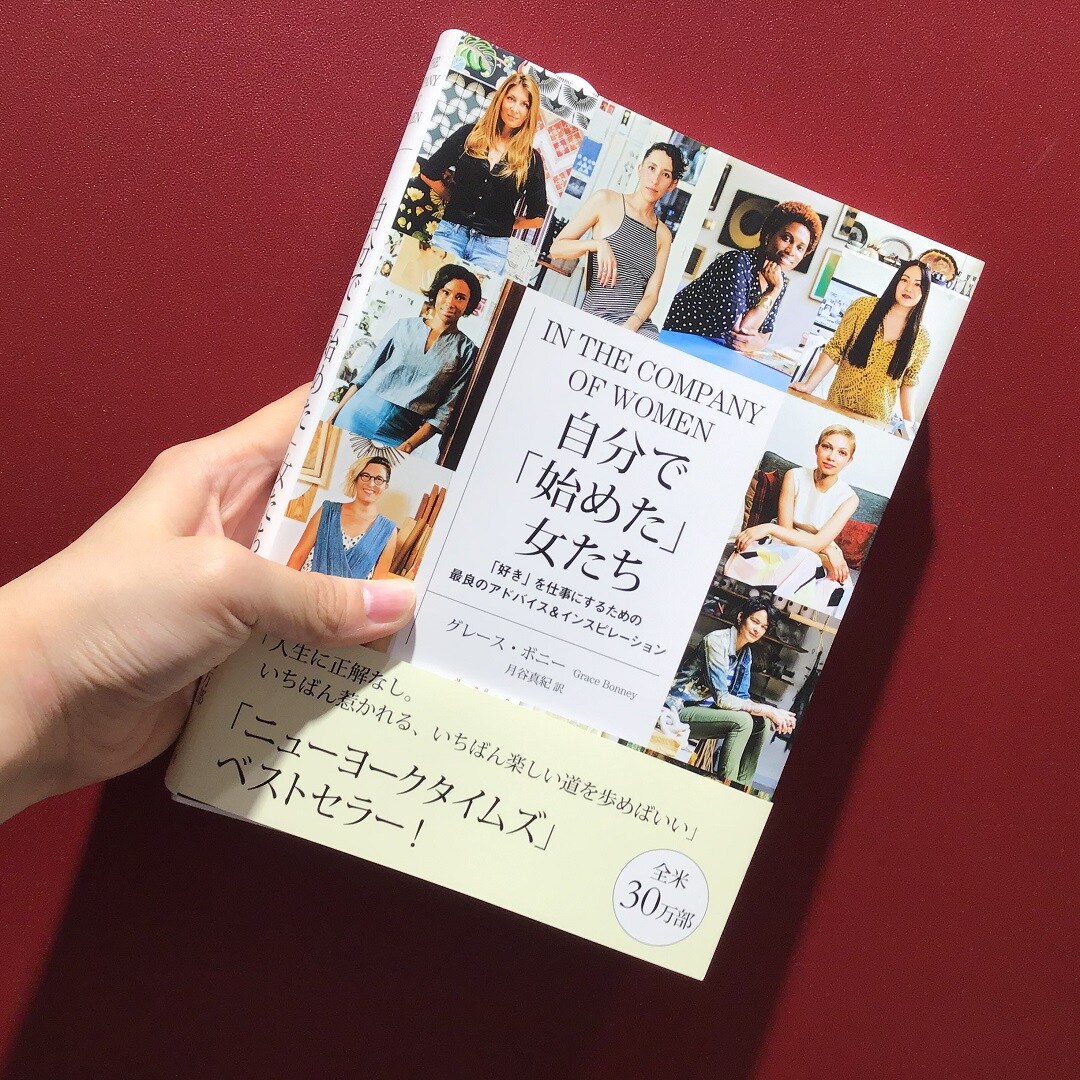 IN THE COMPANY
OF WOMEN
自分で
「始めた」
女たち
「好き」を仕事にするための
最良のアドバイス＆インスピレーション
グレース・ボニー Grace Bonney
月谷真紀 訳
「人生に正解なし。
いちばん惹かれる、いちばん楽しい道を歩めばいい」
「ニューヨークタイムズ」
ベストセラー！
全米
30万部